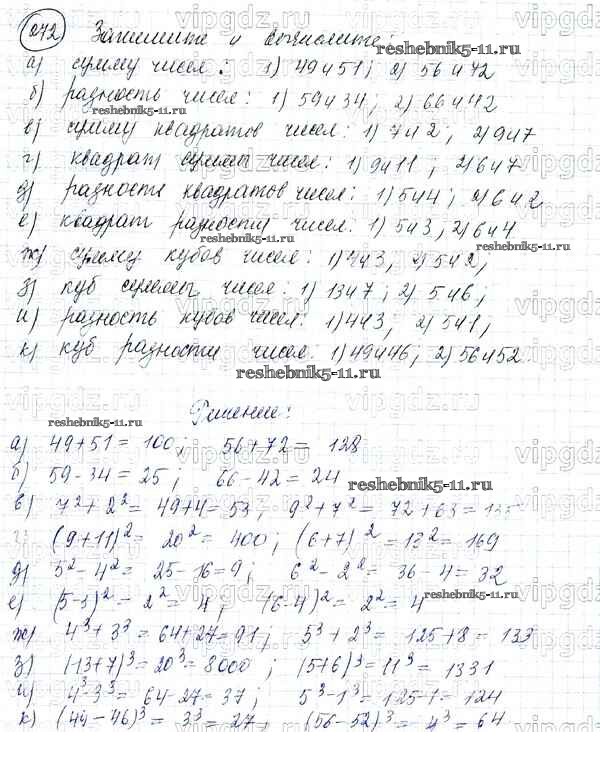 072 Запишите и вычислите:
а) сумму чисел: 1) 49 и 51; 2) 56 и 72
б) разность чисел: 1) 59 и 34; 2) 66 и 42
в) сумму квадратов чисел: 1) 7 и 2; 2) 9 и 7
г) квадрат суммы чисел: 1) 9 и 11; 2) 6 и 7
д) разности квадратов чисел: 1) 5 и 4; 2) 6 и 2
е) квадрат разности чисел: 1) 5 и 3, 2) 6 и 4
ж) сумму кубов чисел: 1) 4 и 3, 2) 5 и 2,
з) куб суммы чисел: 1) 13 и 7; 2) 5 и 6;
и) разность кубов чисел: 1) 4 и 3; 2) 5 и 1,
к) куб разности чисел: 1) 49 и 46, 2) 56 и 52.
reshebnik5-11.ru
Решение:
а) 49+51 = 100; 56+72 = 128
б) 59-34 = 25; 66-42 = 24
в) 7²+2² = 49+4 = 53, 9²+7² = 72+63 =
(9+11)² = 20² = 400, (6+7)² = 13² = 169
д) 5²-4² = 25-16 = 9; 6²-2² = 36-4 = 32
е) (5-3)² = 2² = 4; (6-4)² = 2² = 4
ж) 4³+3³ = 64+27 = 91; 5³+2³ = 125+8 = 133
з) (13+7)³ = 20³ = 8000; (5+6)³ = 11³ = 1331
и) 4³-3³ = 64-27 = 37; 5³-1³ = 125-1 = 124
к) (49-46)³ = 3³ = 27, (56-52)³ = 4³ = 64